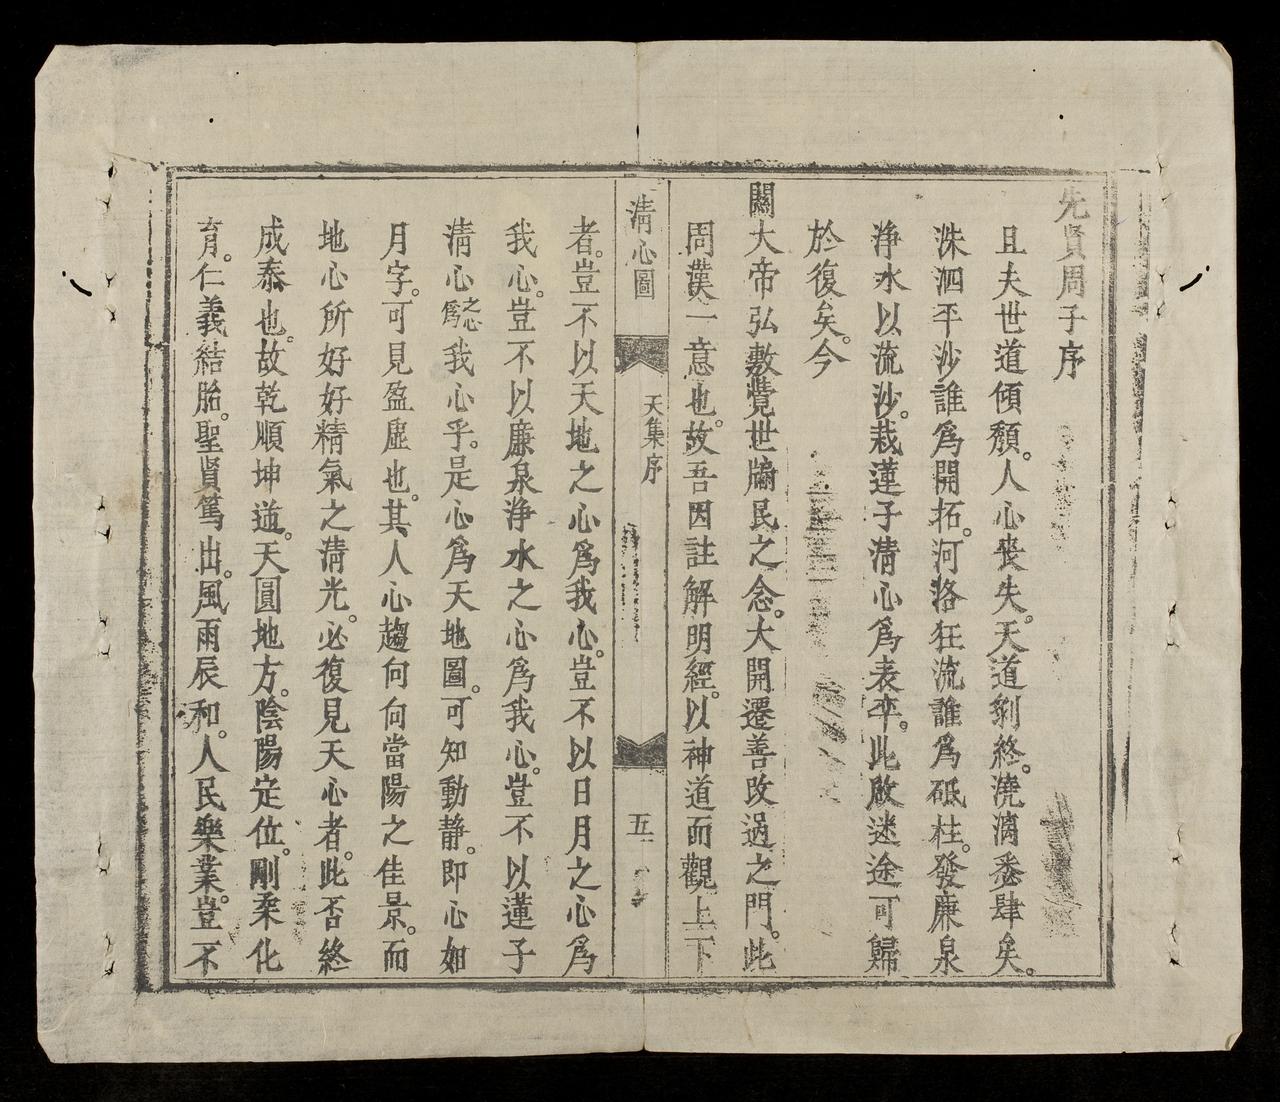 先賢周子序
且夫世道傾頹。人心喪失。天道剝終。澆漓悉肆矣。
洙泗平沙誰爲開拓。河洛狂流誰爲砥柱。發廉泉
浄水以流沙。栽蓮子清心爲表率。此啟迷途可歸
於復矣。今
關大帝弘敷覺世牖民之念。大開遷善改過之門。此
周漢一意也。故吾因註解明經。以神道而觀上下
清心圖
天集序
五
者。豈不以天地之心爲我心。豈不以日月之心爲
我心。豈不以廉泉浄水之心爲我心。豈不以蓮子
清心之心爲我心乎。是心爲天地圖。可知動静。即心如
月字。可見盈虛也。其人心趨向向當陽之佳景。而
地心所好好精氣之清光。必復見天心者。此否終
成泰也。故乾順坤道。天圓地方。陰陽定位。剛柔化
育。仁義結胎。聖賢篤出。風雨辰和。人民樂業。豈不